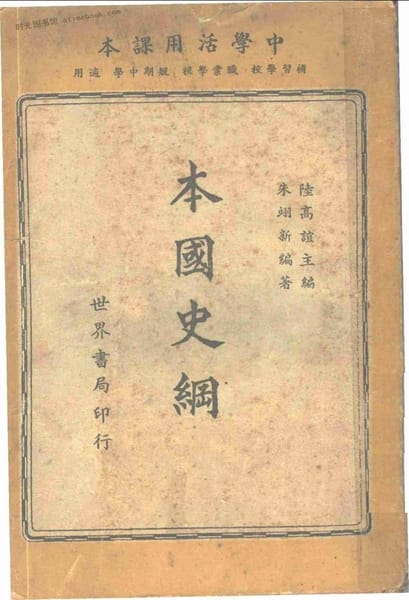 时光图书馆 atimebook.com
中學活用課本
補習學校 職業學校 短期中學 適用
陸高誼主編
朱翊新編著
本國史綱
世界書局印行